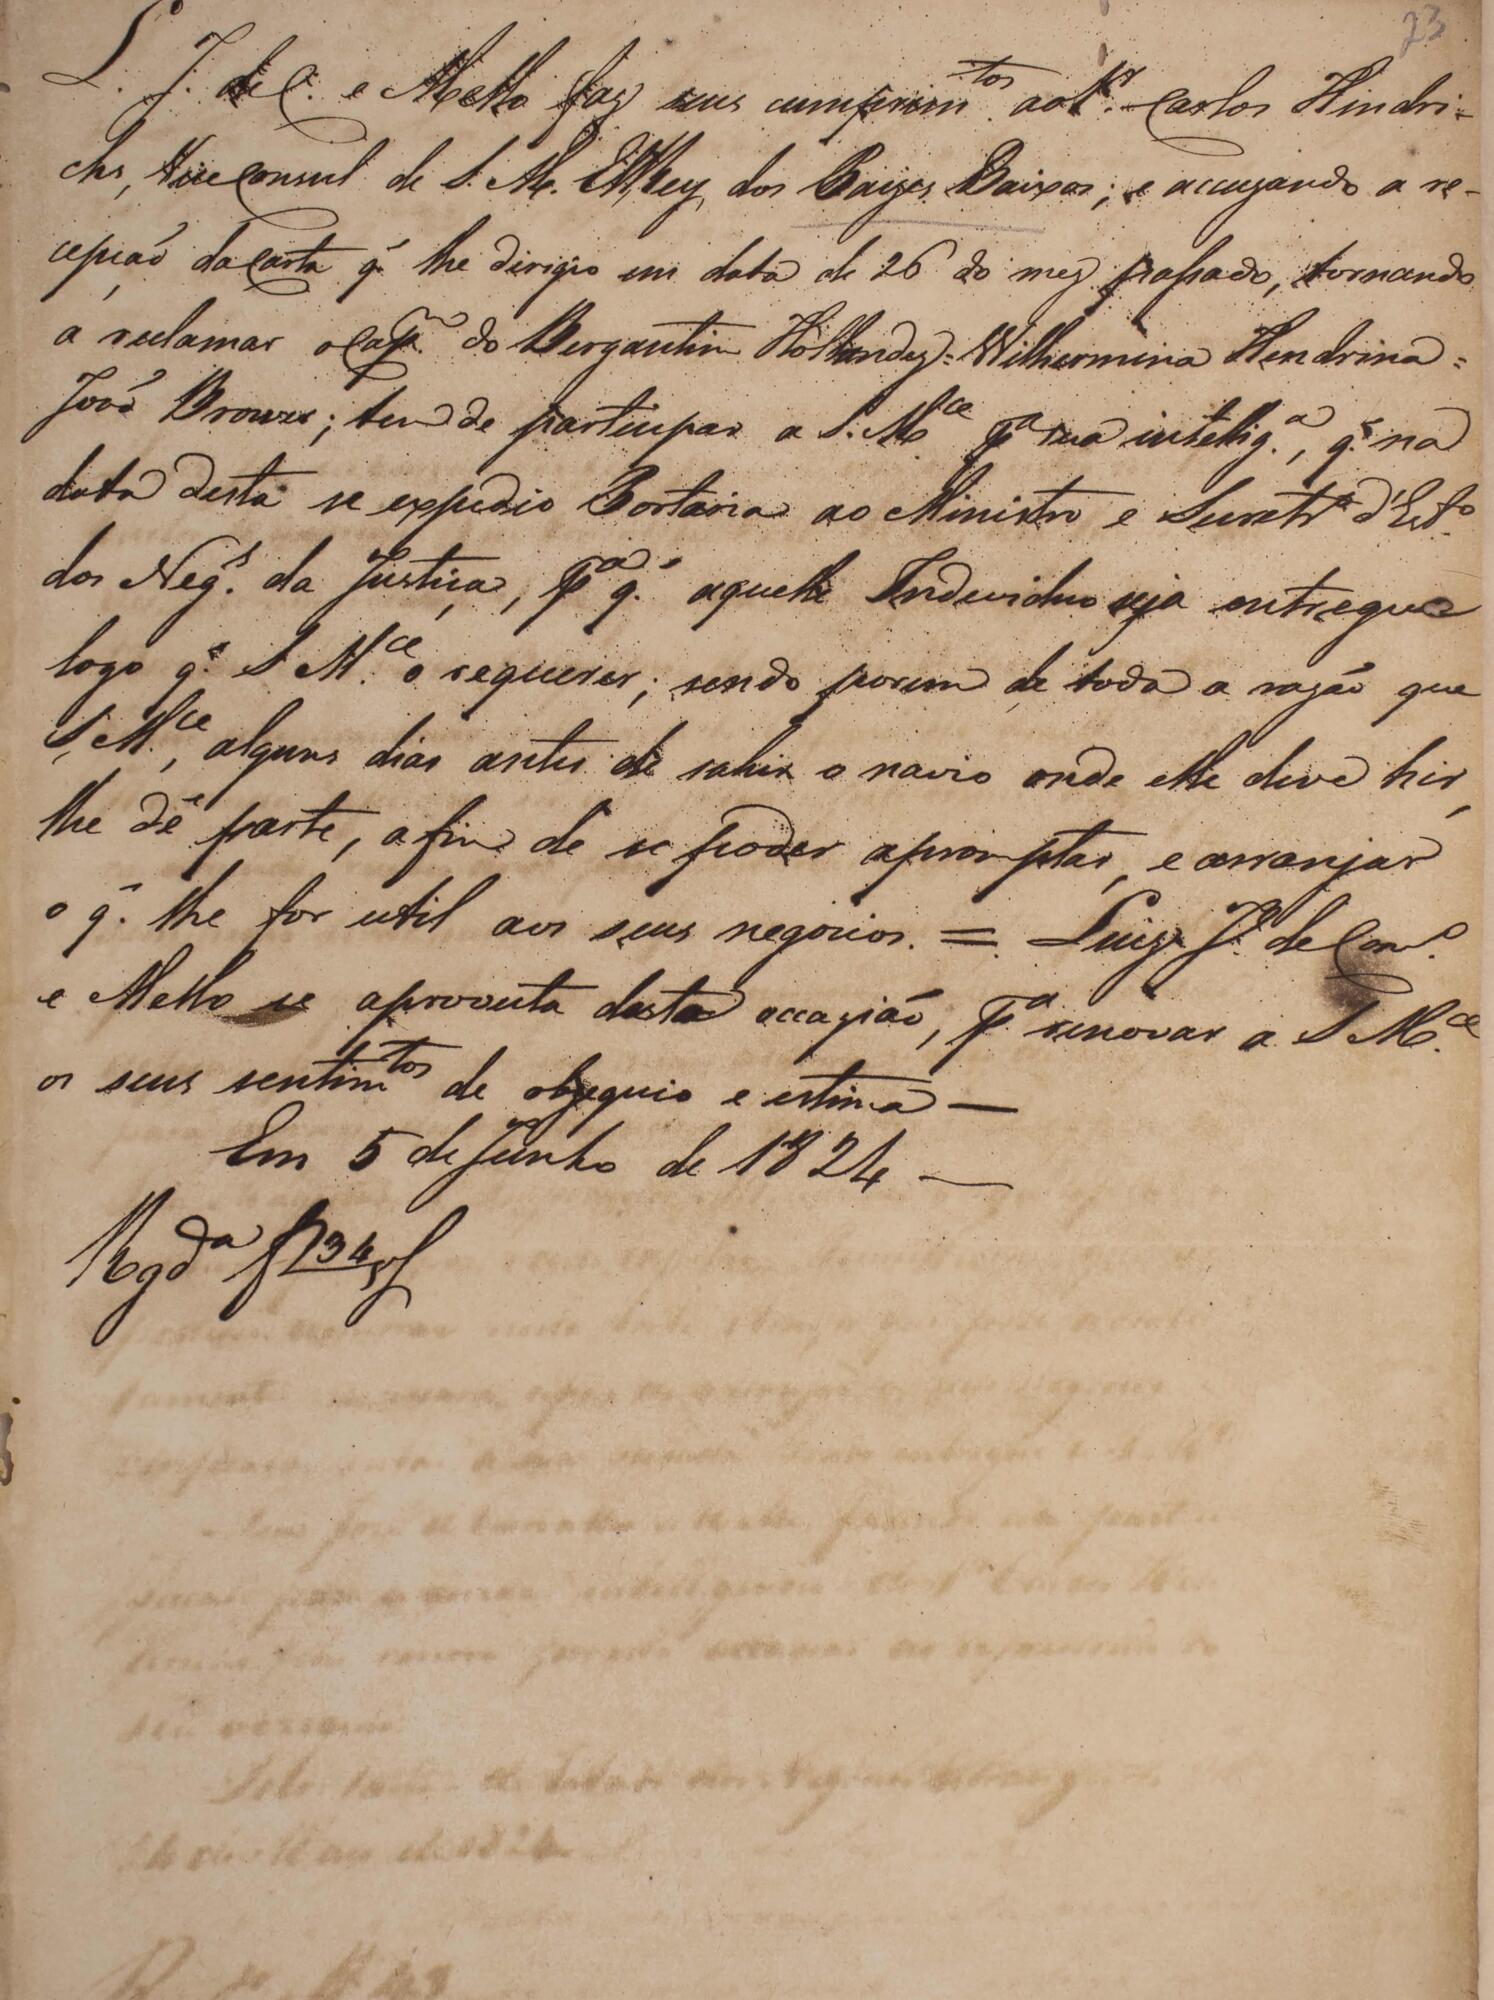 73
L. J. de C. e Mello faz seus cumprim.tos ao Sr. Carlos Hindri-
chs, Vice Consul de S. M. ElRey dos Paizes Baixos; e accuzando a re-
cepção da Carta q̃ lhe dirigio em data de 26 do mez passado, tornando
a reclamar o Cap.m do Bergantim Hollandez = Wilhermina Hendrina =
João Brouwer; tem de participar a S. M.ce p.a sua intellig.a, q̃ na
data desta se expedio Portaria ao Ministro e Secretr.o d'Est.o
dos Neg.s da Justiça, p.a q̃ aquelle Individuo seja entregue
logo q̃ S M.ce o requerer; sendo porem de toda a razão que
S. M.ce, alguns dias antes de sahir o navio onde elle deve hir,
lhe dê parte, a fim de se poder apromptar, e arranjar
o q̃ lhe for util aos seus negocios. = Luiz J.e de Carv.o
e Mello se aproveita desta occazião, p.a renovar a S M.ce
os seus sentim.tos de obzequio e estima —
Em 5 de Junho de 1824 —
Rgd.a f 34